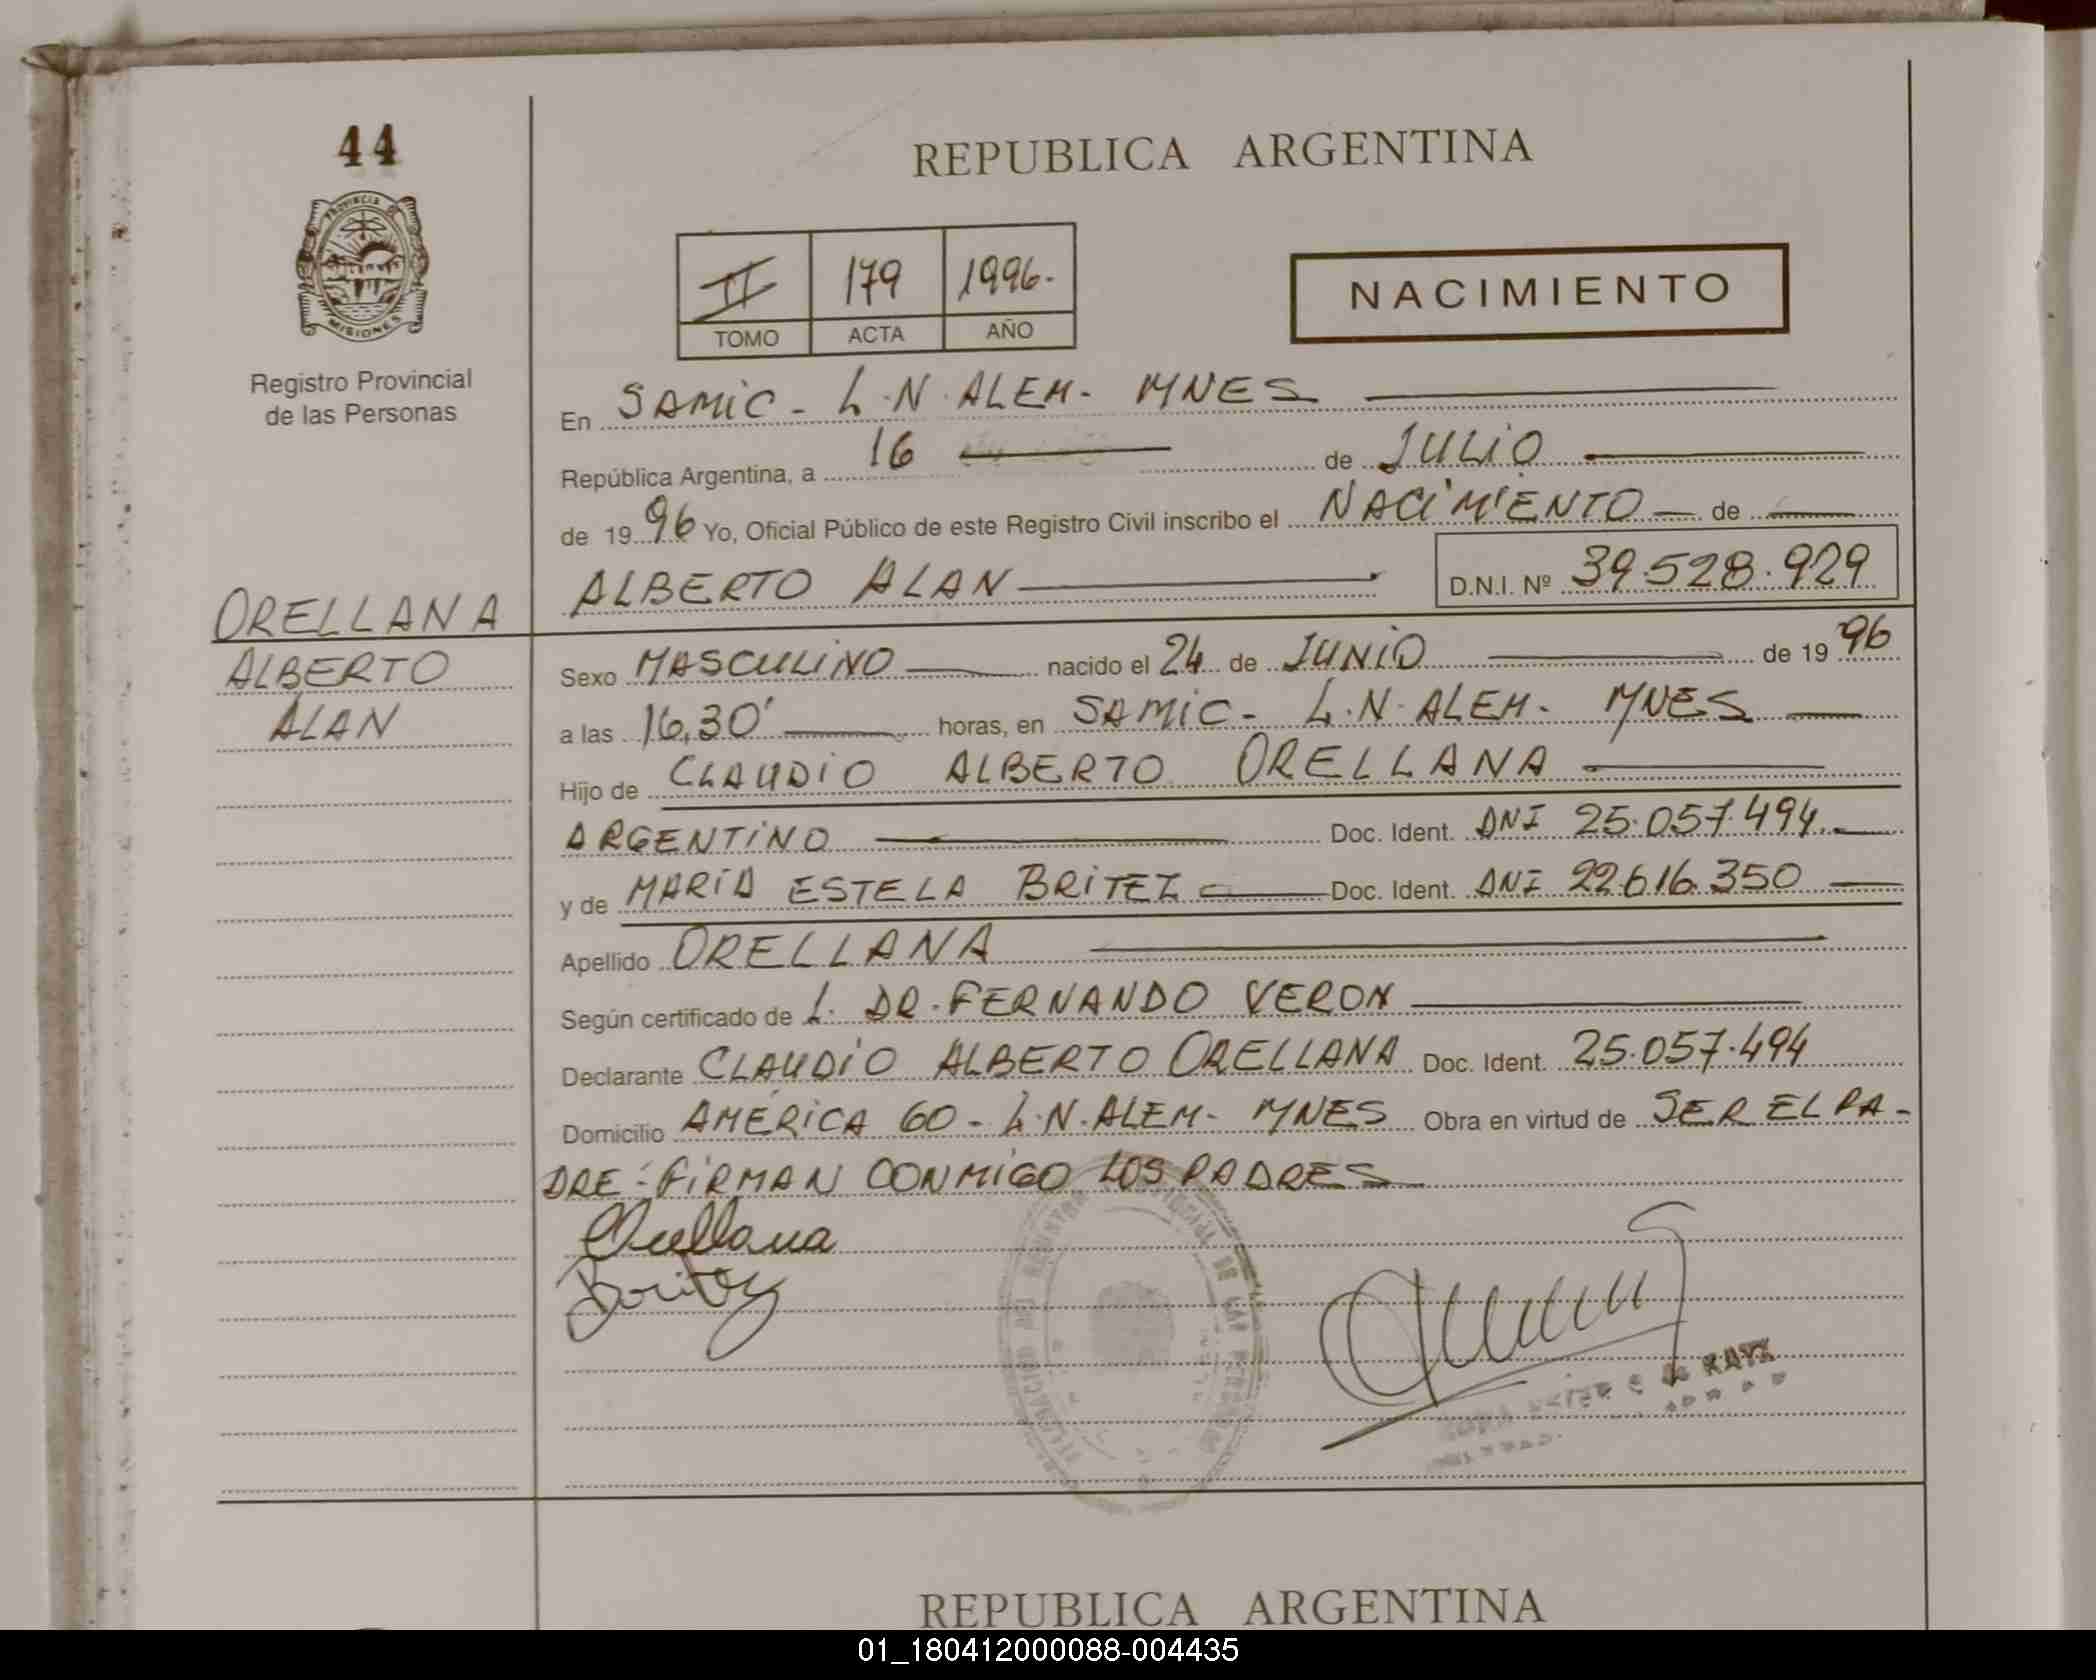 44
PROVINCIA DE
MISIONES
Registro Provincial
de las Personas
ORELLANA
ALBERTO
ALAN
REPUBLICA ARGENTINA
II 179 1996.
TOMO ACTA AÑO
NACIMIENTO
En SAMIC - L.N. ALEM - MNES
República Argentina, a 16 de JULIO
de 1996 Yo, Oficial Público de este Registro Civil inscribo el NACIMIENTO de
ALBERTO ALAN D.N.I. Nº 39.528.929
Sexo MASCULINO nacido el 24 de JUNIO de 1996
a las 16,30' horas, en SAMIC - L.N. ALEM - MNES
Hijo de CLAUDIO ALBERTO ORELLANA
ARGENTINO Doc. Ident. DNI 25.057.494
y de MARIA ESTELA BRITEZ Doc. Ident. DNI 22.616.350
Apellido ORELLANA
Según certificado de L. DR. FERNANDO VERON
Declarante CLAUDIO ALBERTO ORELLANA Doc. Ident. 25.057.494
Domicilio AMÉRICA 60 - L.N. ALEM - MNES Obra en virtud de SER EL PA-
DRE - FIRMAN CONMIGO LOS PADRES
Orellana
Britez
de KATZ
REPUBLICA ARGENTINA
01_180412000088-004435